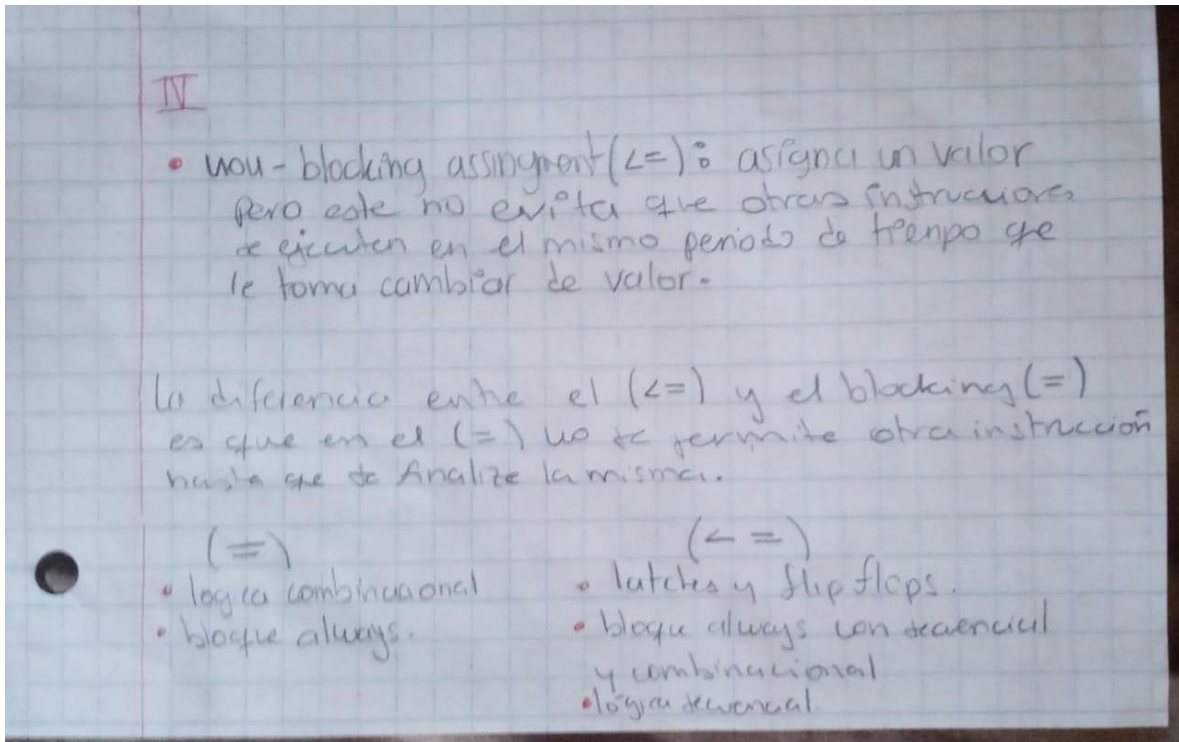 IV
• non-blocking assingment (<=): asigna un valor
pero este no evita que otras instrucciones
se ejecuten en el mismo periodo de tiempo qe
le toma cambiar de valor.
La diferencia entre el (<=) y el blocking (=)
es que en el (=) no se permite otra instrucción
hasta qe se finalize la misma.
(=) (<=)
• logica combinacional • latches y flip flops.
• bloque always. • bloqu always con secuencial
y combinacional
• lógica secuencial.